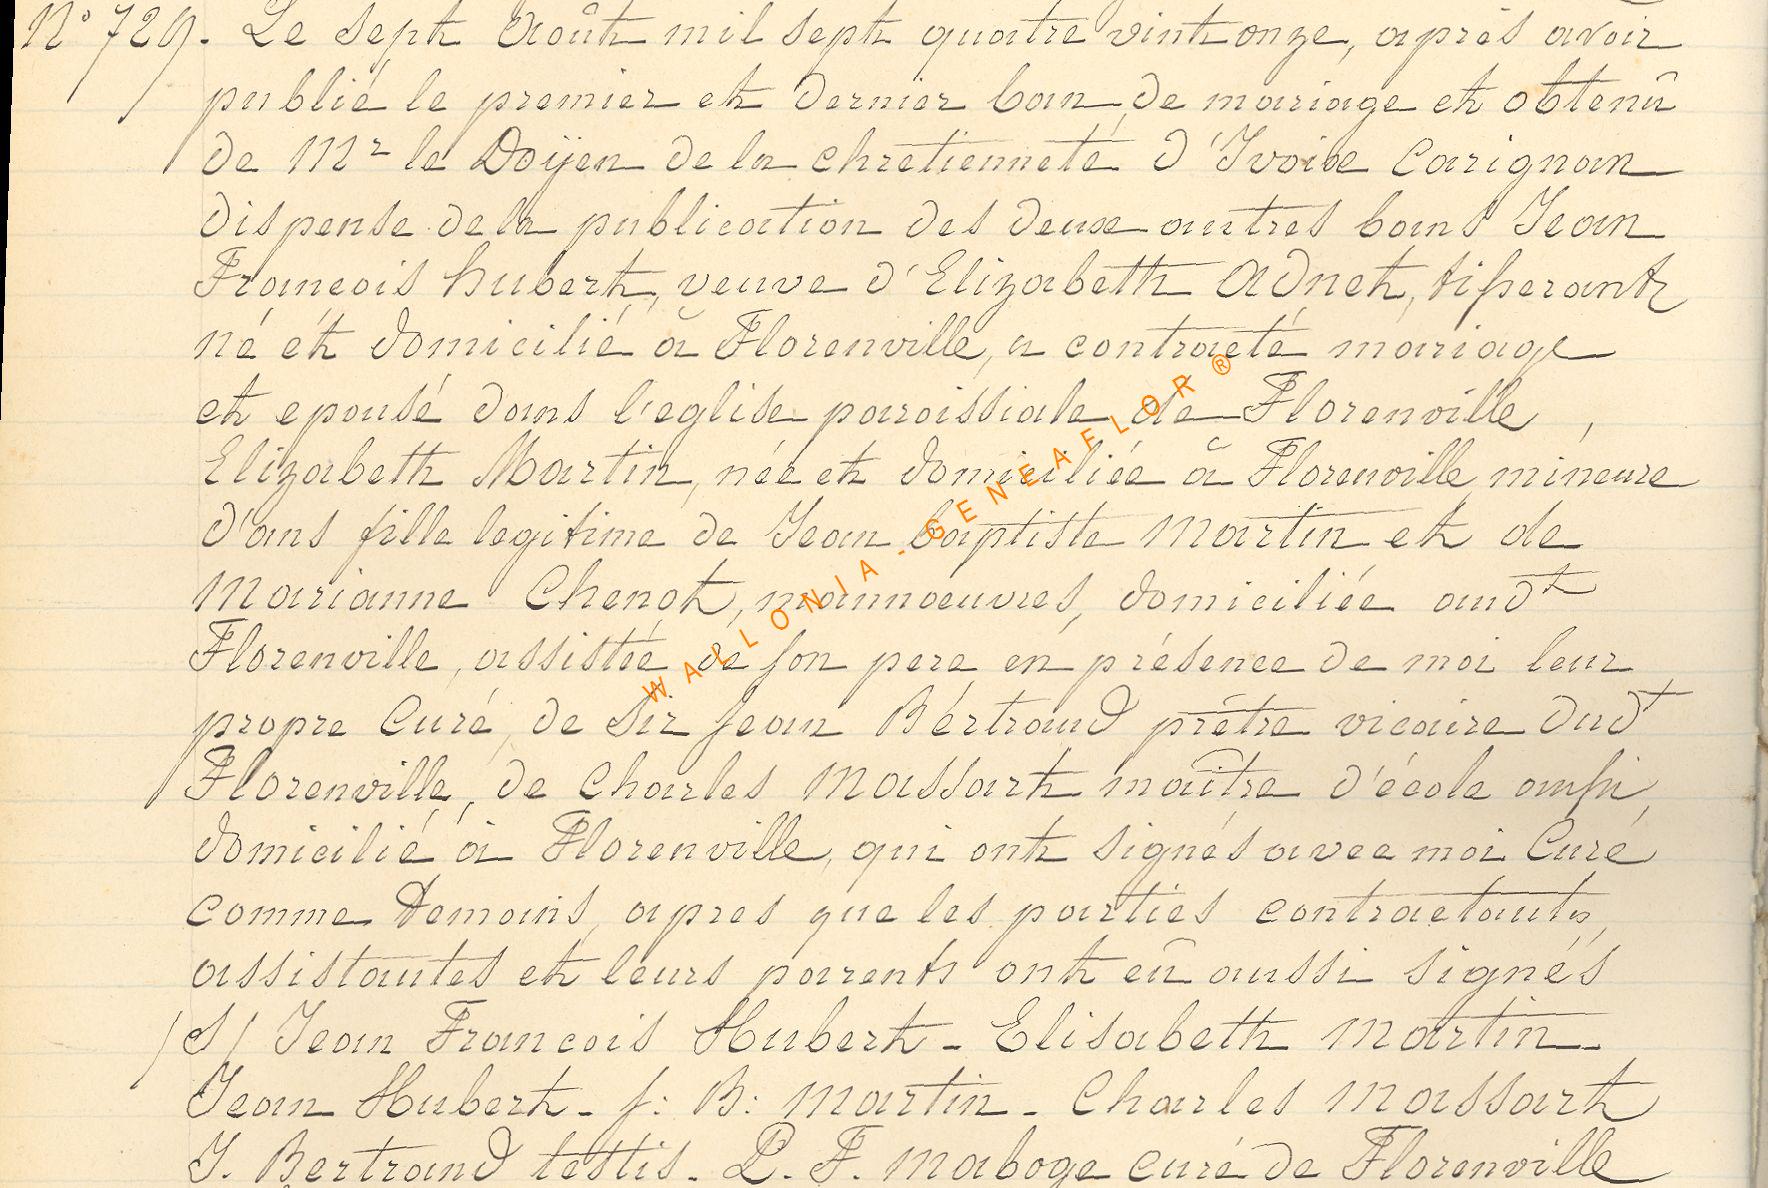 N° 729. Le sept Août mil sept quatre vint onze, après avoir
publié le premier et dernier ban de mariage et obtenû
de Mr le Doÿen de la chretienneté d'Ivoix Carignan
dispense de la publication des deux autres bans Jean
François hubert, veuve d'Elizabeth Adnet, tisserant
né et domicilié à Florenville, a contracté mariage
et epousé dans l'eglise paroissiale de Florenville,
Elizabeth Martin, née et domiciliée à Florenville mineure
d'ans fille legitime de Jean baptiste Martin et de
Marianne Chenot, mannoeuvres, domiciliée audt
Florenville, assistée de son pere en présence de moi leur
propre Curé, de Sir Jean Bértrand prêtre vicaire dudt
Florenville, de Charles Massart maître d'école aussi
domicilié à Florenville, qui ont signés avec moi Curé
comme temoins, apres que les parties contractants,
assistantes et leurs parents ont eû aussi signés
/S/ Jean Francois Hubert - Elisabeth Martin -
Jean Hubert - J: B: Martin - Charles Massart
J. Bertrand testis - P. F. Maboge curé de Florenville
WALLONIA - GENEAFLOR ®